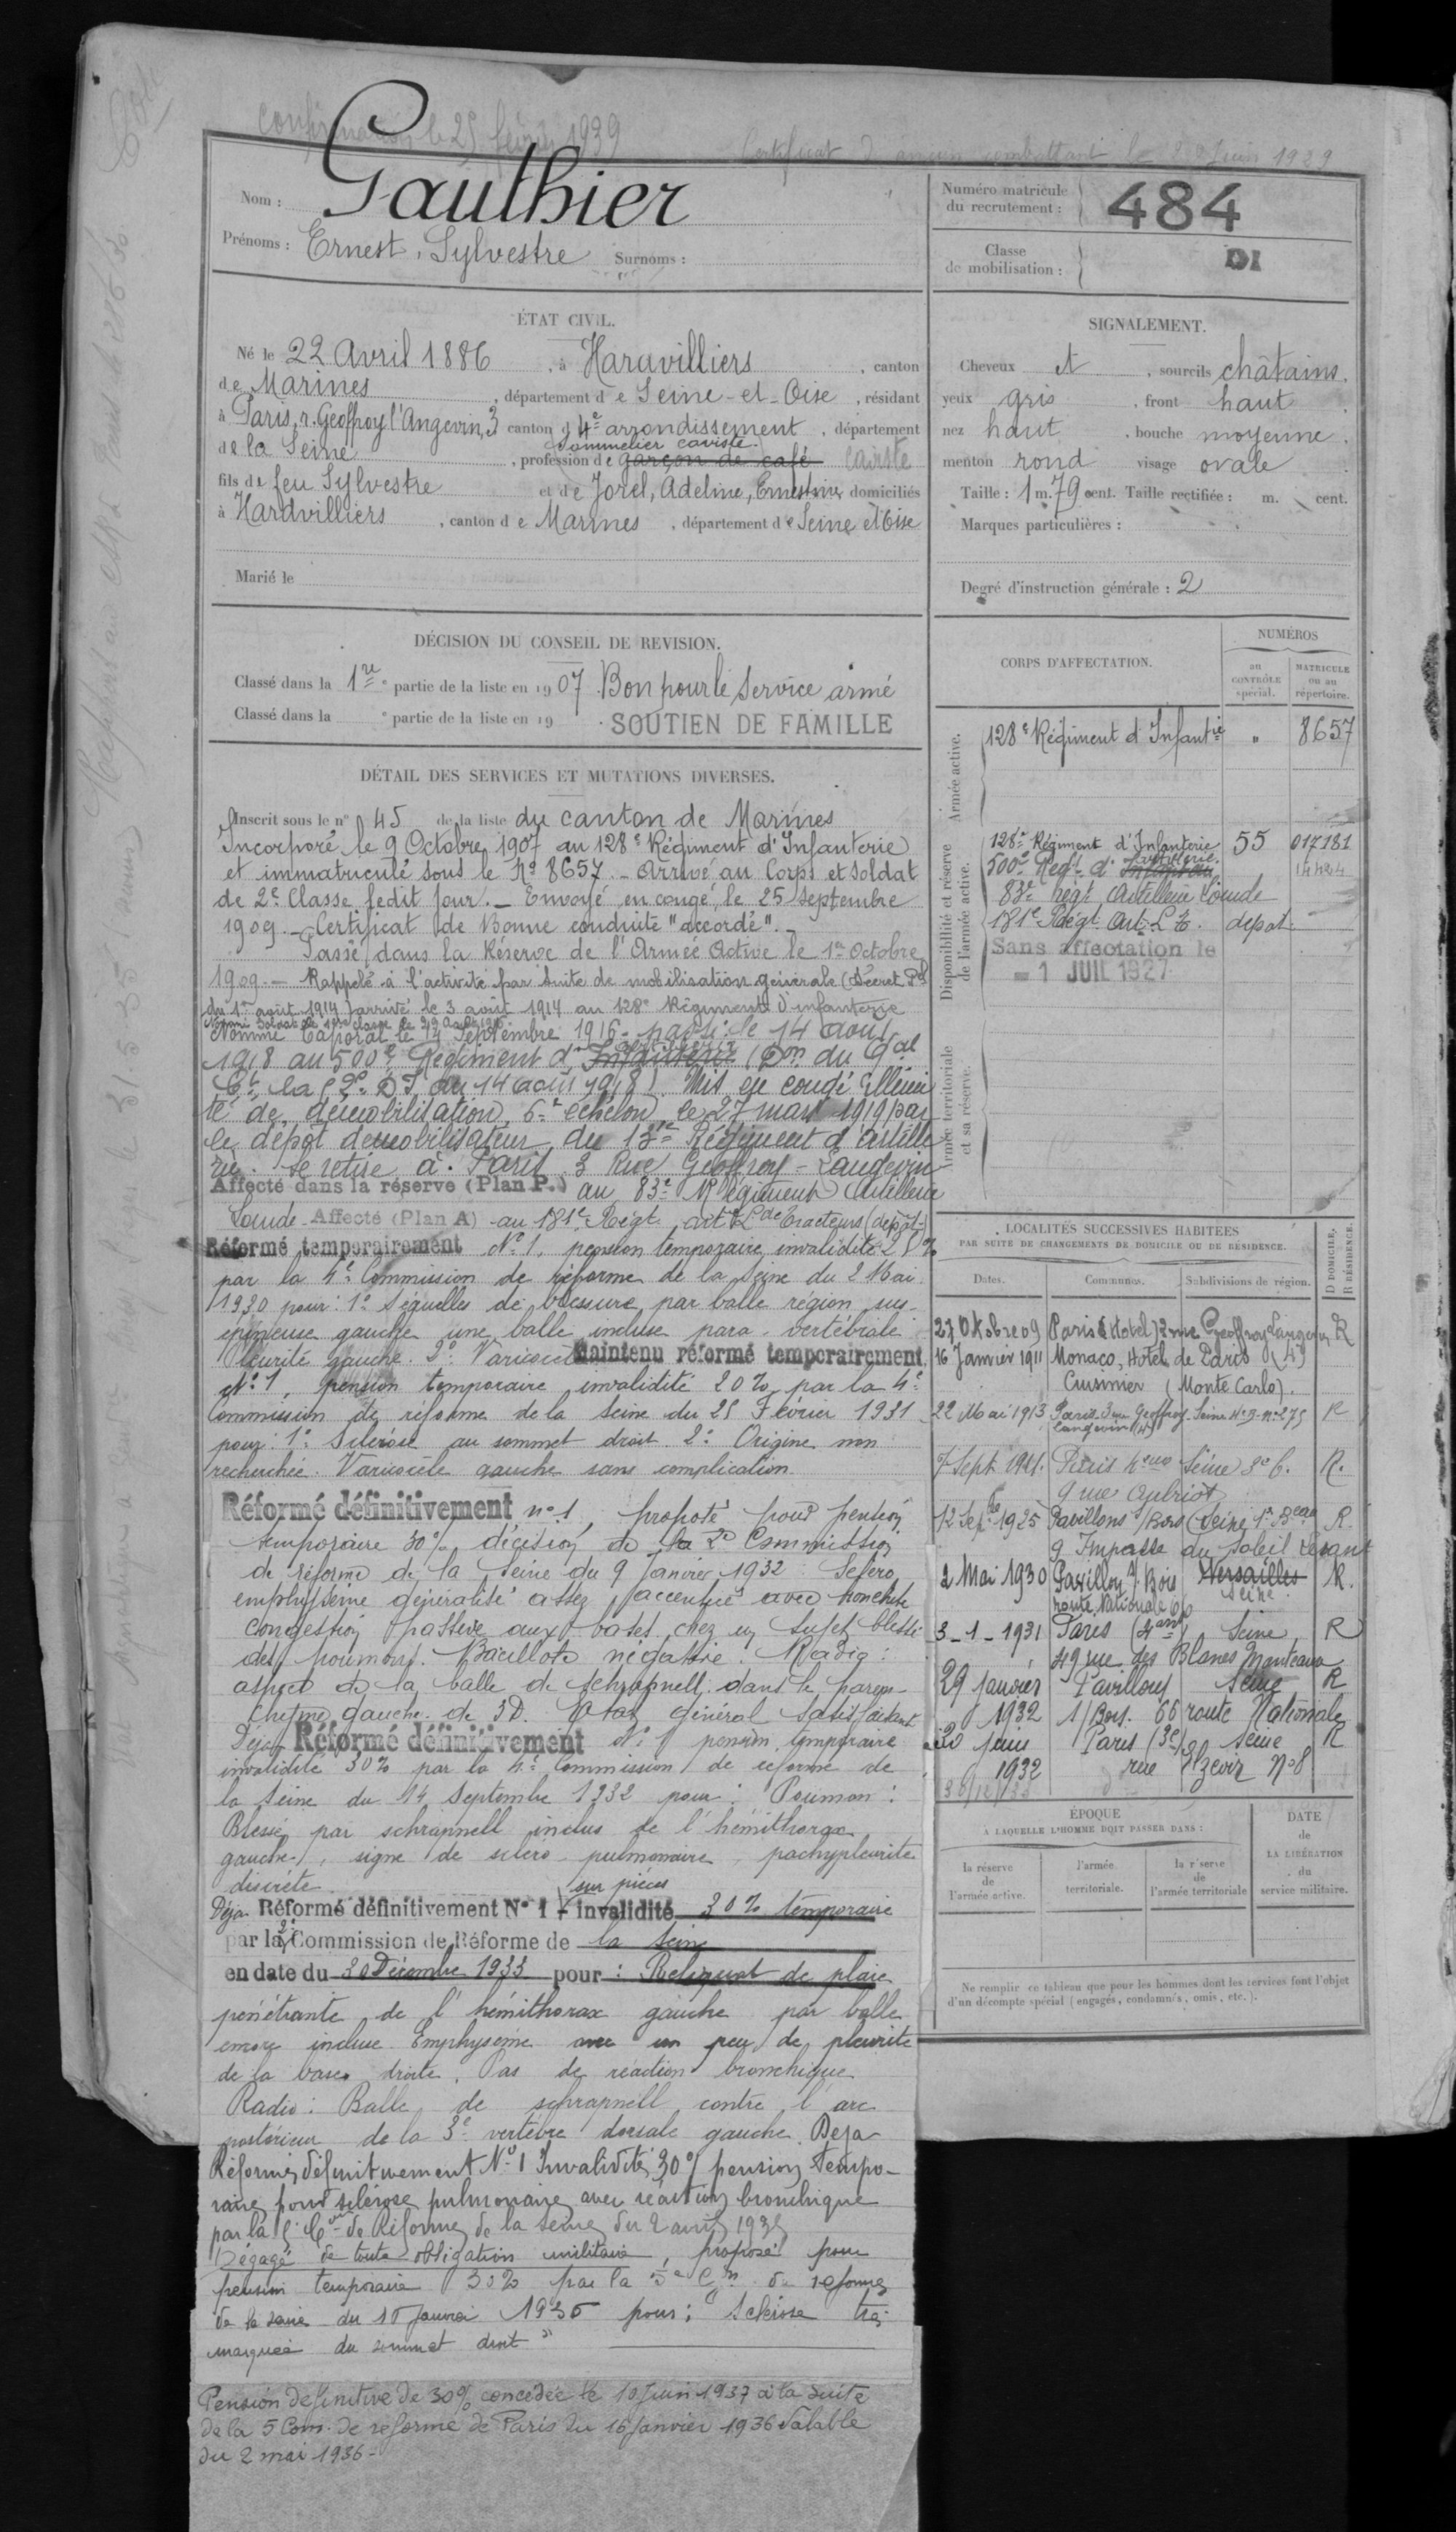 Confirmation le 25 février 1939
Certificat d'ancien combattant le 22 Juin 1929
Nom : Gauthier
Prénoms : Ernest, Sylvestre Surnoms :
Numéro matricule
du recrutement : 484
Classe
de mobilisation :
DI
ÉTAT CIVIL.
Né le 22 Avril 1886, à Haravilliers, canton
de Marines, département de Seine-et-Oise, résidant
à Paris, r. Geoffroy l'Angevin, 3 canton d 4e arrondissement, département
Sommelier caviste
de la Seine, profession de garçon de café caviste
fils de feu Sylvestre et de Jorel, Adeline, Ernestine, domiciliés
à Haravilliers, canton de Marines, département de Seine et Oise
Marié le
SIGNALEMENT.
Cheveux et, sourcils châtains.
yeux gris, front haut
nez haut, bouche moyenne.
menton rond visage ovale
Taille : 1 m. 79 cent. Taille rectifiée : m. cent.
Marques particulières :
Degré d'instruction générale : 2
DÉCISION DU CONSEIL DE REVISION.
Classé dans la 1re partie de la liste en 1907. Bon pour le service armé
Classé dans la e partie de la liste en 19 . SOUTIEN DE FAMILLE
DÉTAIL DES SERVICES ET MUTATIONS DIVERSES.
Inscrit sous le n° 45 de la liste du canton de Marines
Incorporé le 9 Octobre 1907 au 128e Régiment d'Infanterie
et immatriculé sous le No 8657. - Arrivé au Corps et soldat
de 2e Classe ledit jour. - Envoyé en congé, le 25 septembre
1909. - Certificat de Bonne conduite "accordé". -
Passé dans la Réserve de l'Armée Active le 1er Octobre
1909. - Rappelé à l'activité par suite de mobilisation générale (Décret Pel
du 1er août 1914) arrivé le 3 août 1914 au 128e Régiment d'infanterie
Nommé soldat de 1ère classe le 29 Août 1916.
Nommé Caporal le 4 Septembre 1916 - passé le 14 août
1918 au 500e Régiment d'Infanterie artillerie (Don du Gal
Ct la 2e DI du 14 août 1918). Mis en congé illimi
té de démobilisation, 6e échelon, le 27 mars 1919 par
le dépôt démobilisateur du 13e Régiment d'artille
rie. Se retire à Paris 3 Rue Geoffroy-Langevin
Affecté dans la réserve (Plan P.) au 83e Régiment Artillerie
Lourde. Affecté (Plan A) au 181e Régt art Lde Tracteurs (dépôt)
Réformé temporairement N° 1. pension temporaire invalidité 25 %
par la 4e Commission de réforme de la Seine du 2 Mai
1930 pour : 1° Séquelles de blessure par balle région sus-
épineuse gauche une balle incluse para-vertébrale
Pleurite gauche. 2° Varicocèle Maintenu réformé temporairement
N° 1, pension temporaire invalidité 20 % par la 4e
Commission de réforme de la Seine du 25 Février 1931
pour : 1° Sclérose au sommet droit 2° Origine non
recherchée. Varicocèle gauche sans complication
Réformé définitivement n° 1, proposé pour pension
temporaire 30 % décision de la 2e Commission
de réforme de la Seine du 9 Janvier 1932 Scléro
emphysème généralisé assez accentué avec bronchite
Congestion passive aux bases chez un sujet blessé
des poumons. Bacillose négative. Radio :
aspect de la balle de schrapnell dans le paren-
chyme gauche de 3D. Etat général satisfaisant
Déjà Réformé définitivement N° 1 pension temporaire
invalidité 30 % par la 4e Commission de réforme de
la Seine du 14 Septembre 1932 pour : Poumon :
Blessé par schrapnell inclus de l'hémithorax
gauche, signe de scléro-pulmonaire, pachypleurite
discrète
sur pièces
Déjà Réformé définitivement N° 1 - invalidité 30 % temporaire
par la 2e Commission de Réforme de la Seine
en date du 30 Décembre 1933 pour : Reliquat de plaie
pénétrante de l'hémithorax gauche par balle
encore incluse. Emphysème avec un peu de pleurite
de la base droite. Pas de réaction bronchique
Radio : Balle de schrapnell contre l'arc
postérieur de la 3e vertèbre dorsale gauche. Déjà
Réformé définitivement N° 1 Invalidité 30 % pension tempo-
raire pour sclérose pulmonaire avec réaction bronchique
par la Con de Réforme de la Seine du 2 avril 193
Dégagé de toute obligation militaire, proposé pour
pension temporaire 30 % par la 5e Con de réforme
de la Seine du 16 Janvier 1936 pour : "Sclérose très
marquée du sommet droit"
Pension définitive de 30 % concédée le 10 Juin 1937 à la suite
de la 5 Com. de réforme de Paris du 16 Janvier 1936 Valable
du 2 mai 1936 -
CORPS D'AFFECTATION.
NUMÉROS
au CONTRÔLE spécial.
MATRICULE ou au répertoire.
Armée active.
128e Régiment d'Infantie " 8657
Disponibilité et réserve de l'armée active.
128e Régiment d'Infanterie 55 017181
500e Regt d'Infanterie artillerie
83e Régt Artillerie Lourde
181e Régt Art. L. T. depot
Sans affectation le
- 1 JUIL 1927
Armée territoriale et sa réserve.
LOCALITÉS SUCCESSIVES HABITÉES
PAR SUITE DE CHANGEMENTS DE DOMICILE OU DE RÉSIDENCE.
Dates. Communes. Subdivisions de région.
D DOMICILE, R RÉSIDENCE.
27 Octobre 09 Paris (Hotel) 3 rue Geoffroy Langevin R
16 Janvier 1911 Monaco, Hotel de Paris (4)
Cuisinier (Monte Carlo).
22 Mai 1913 Paris 3 rue Geoffroy Seine 4e B. N° 275 R
Langevin (4)
7 Sept 1921. Paris 4eme Seine 3e B. R.
9 rue Aubriot
12 Sepbre 1925 Pavillons s/Bois (Seine 1er Beau R.
9 Impasse du Soleil Levant
2 Mai 1930 Pavillon s/. Bois Versailles R.
route Nationale 66 Seine
3-1-1931 Paris (4ème) Seine R
49 rue des Blancs Manteaux
29 janvier Pavillons Seine R
1932 s/ Bois. 66 route Nationale
20 juin Paris (3e) Seine R
1932 rue Elzévir N° 8
30/12/33
ÉPOQUE
À LAQUELLE L'HOMME DOIT PASSER DANS :
la réserve de l'armée active.
l'armée territoriale.
la réserve de l'armée territoriale
DATE
de
LA LIBÉRATION
du
service militaire.
Ne remplir ce tableau que pour les hommes dont les services font l'objet
d'un décompte spécial (engagés, condamnés, omis, etc.).